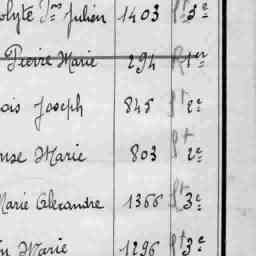 olyte Jn Julien 1403 3e
Pierre Marie 294 R 1er
ois Joseph 845 2e
use Marie 803 2e
Marie Alexandre 1366 3e
in Marie 1296 3e